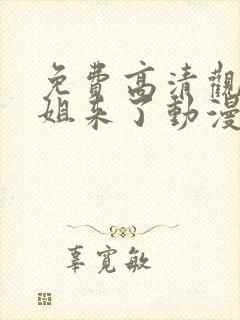 免費高清觀
姐來了動漫
辜寬敏